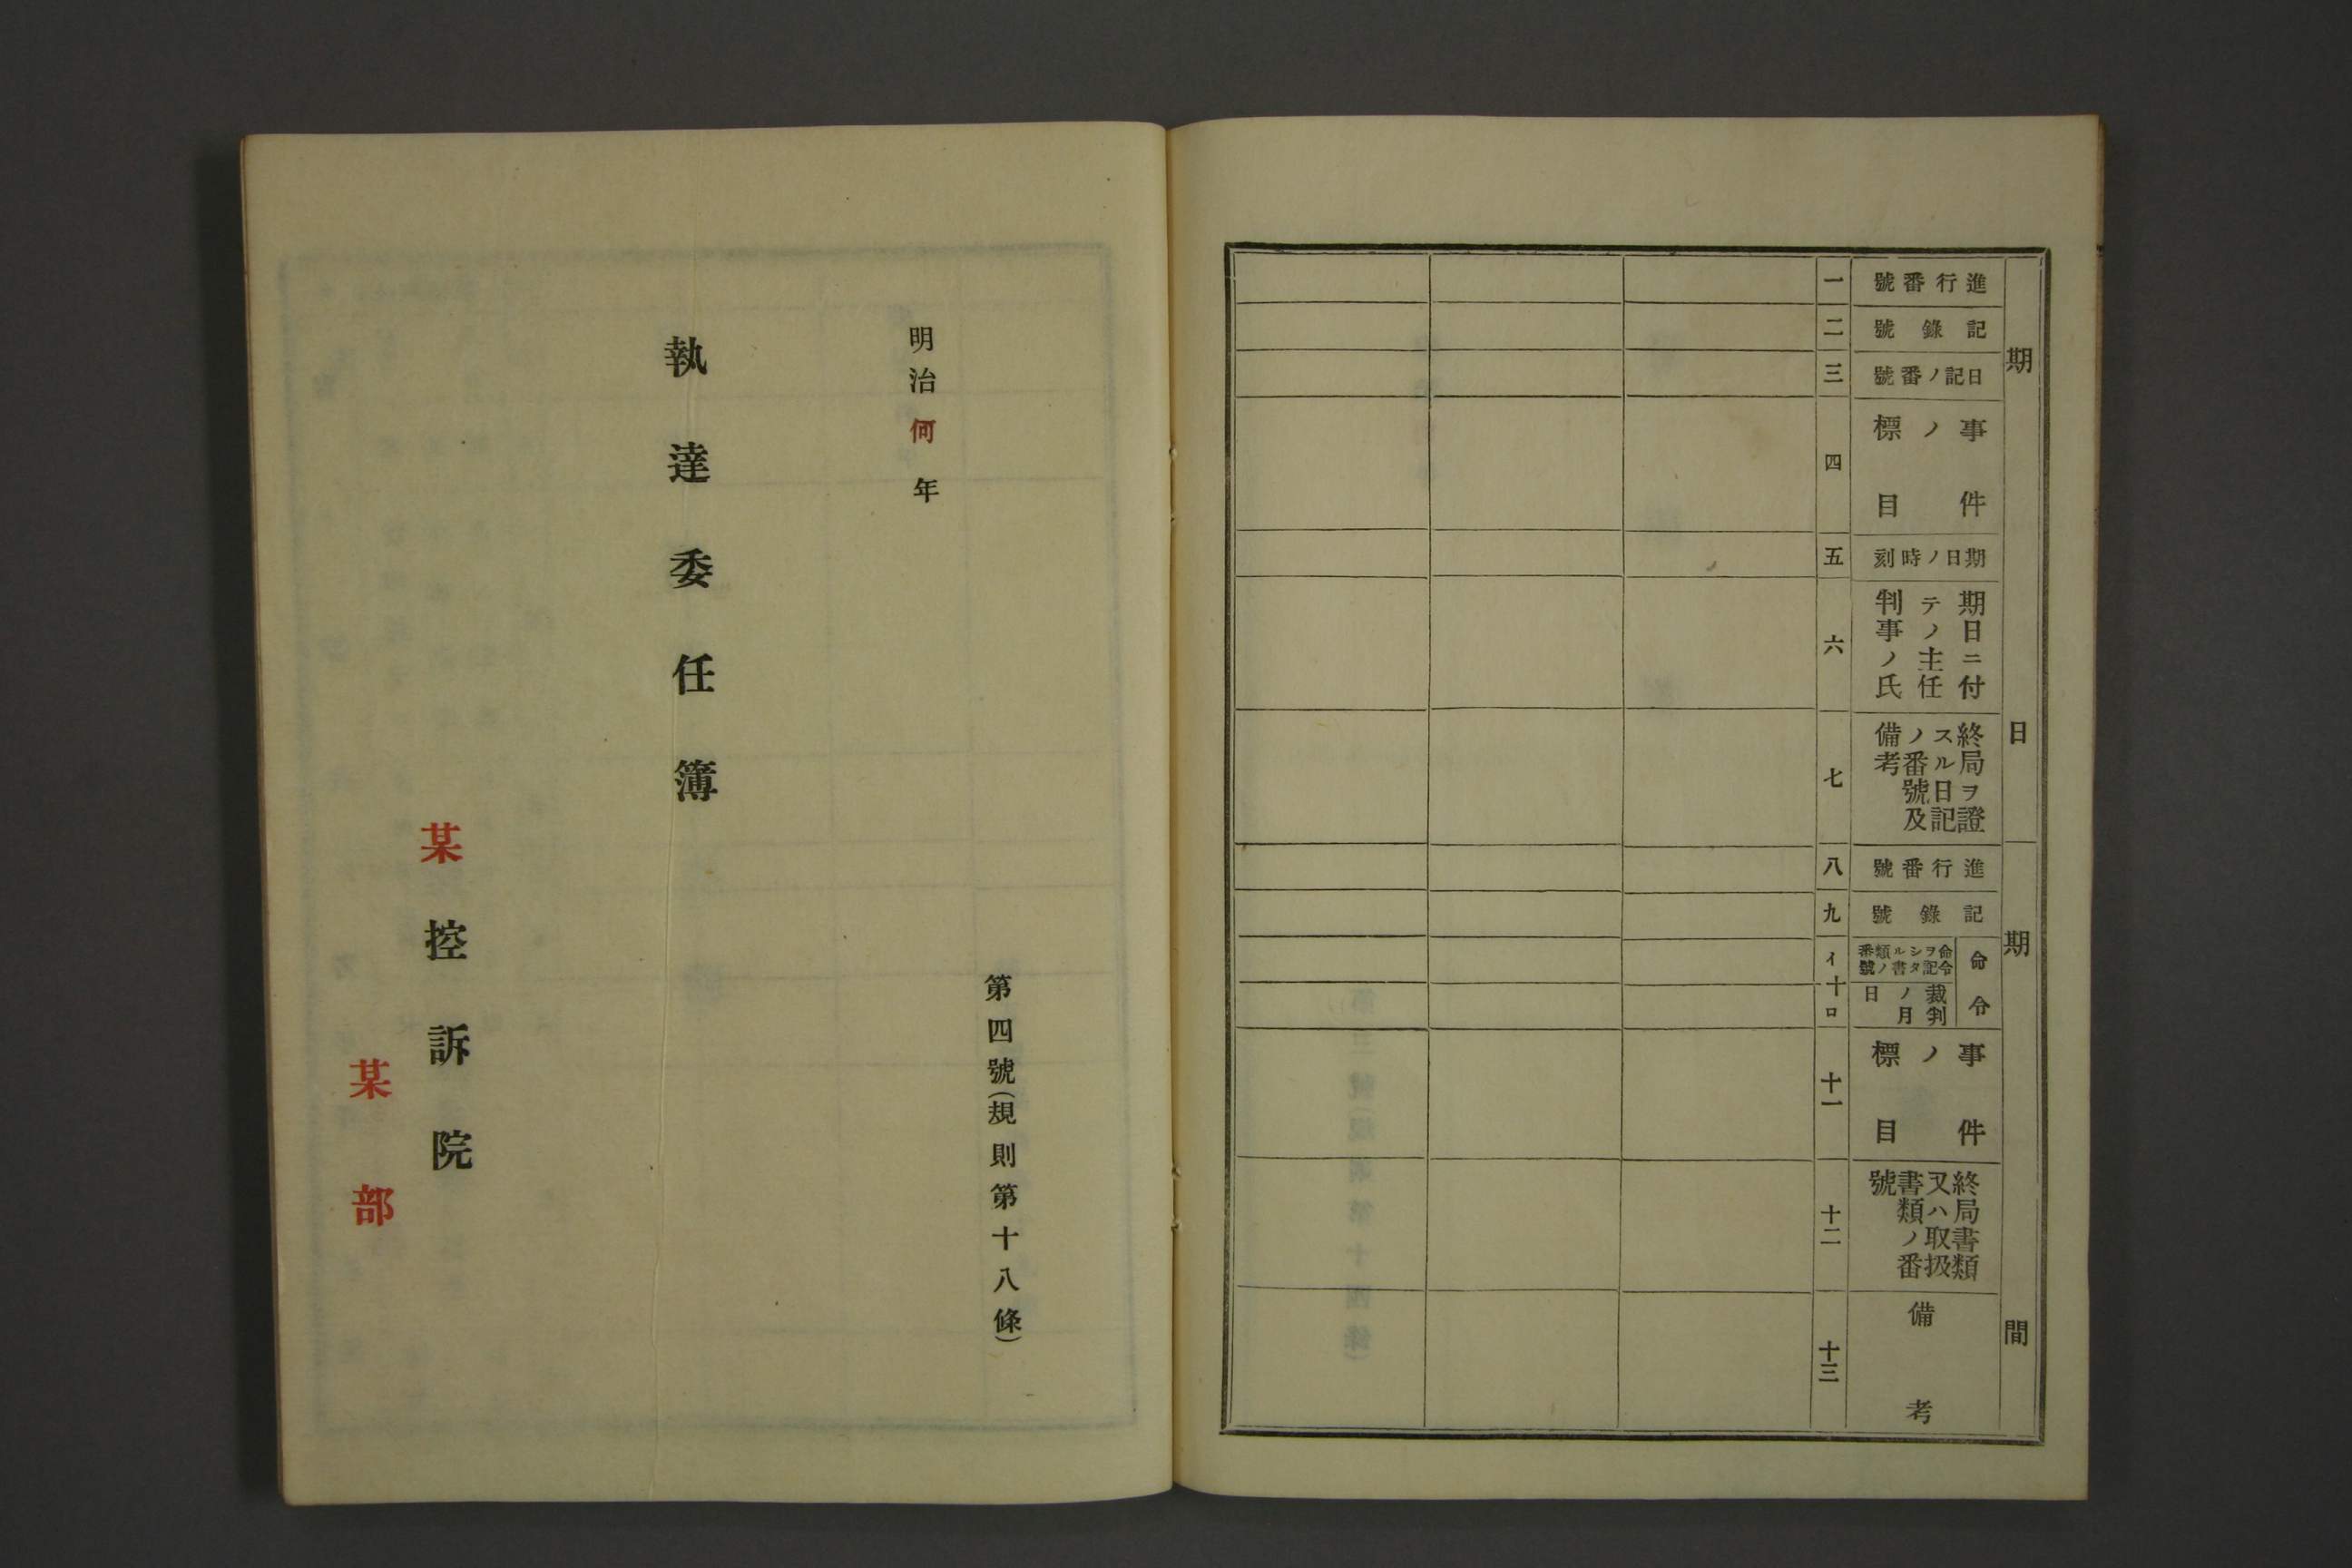 期日
進行番號
記錄號
日記ノ番號
事件ノ標目
期日ノ時刻
期日ニ付
テノ主任
判事ノ氏
終局ヲ證
スル日記
ノ番號及
備考
期間
進行番號
記錄號
命令
命令ヲ記シタル書類ノ番號
裁判ノ月日
事件ノ標目
終局書類
又ハ取扱
書類ノ番
號
備考
一
二
三
四
五
六
七
八
九
十
イ
ロ
十一
十二
十三
第四號(規則第十八條)
明治何年
執達委任簿
某控訴院
某部